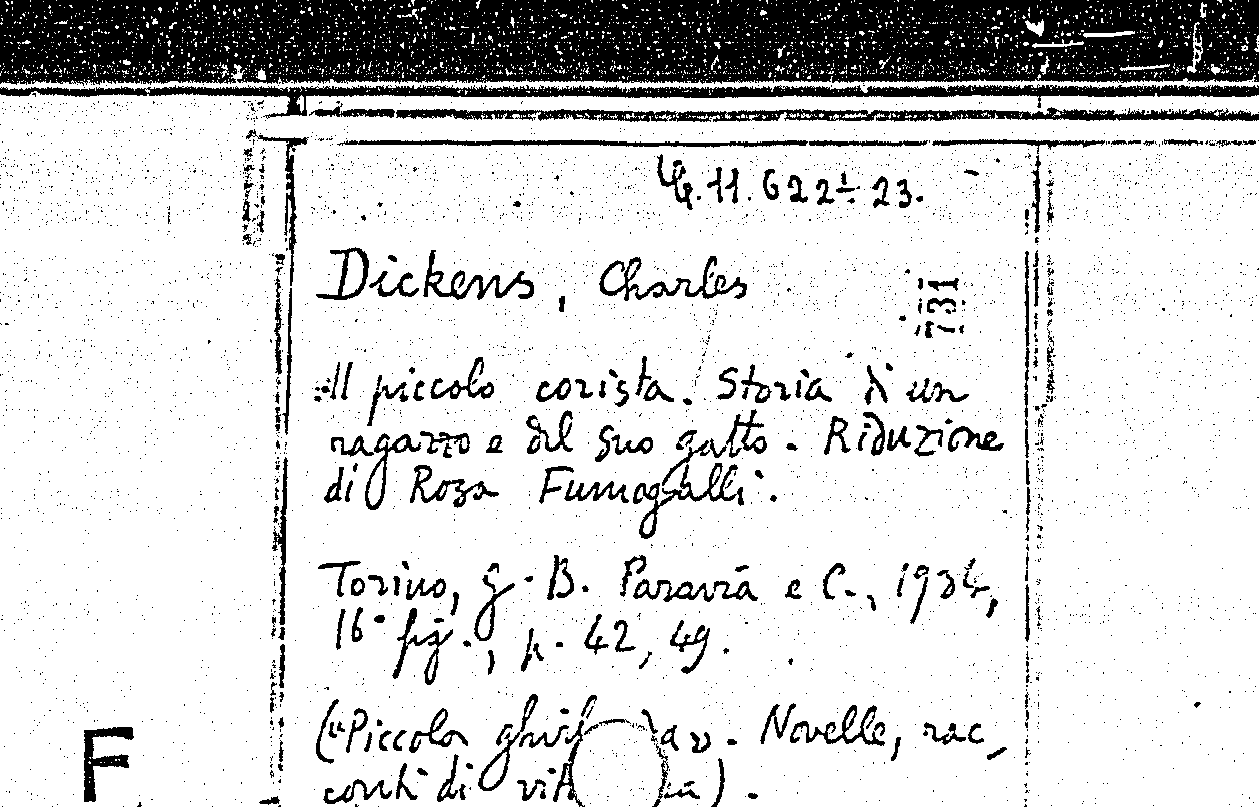 G.11.622¹-23.
Dickens, Charles
731
Il piccolo corista. Storia di un
ragazzo e del suo gatto. Riduzione
di Rosa Fumagalli.
Torino, G. B. Paravia e C., 1934,
16° fig., p. 42, 49.
("Piccola . Novelle, rac,
conti di
F